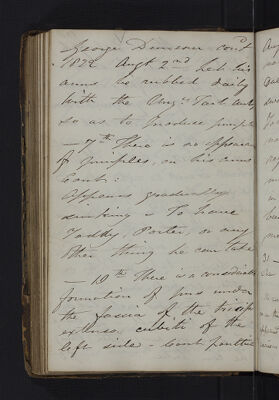 George Dunscon cont
1822 Augt 2nd Let his
arms be rubbed daily
with the Ungt. Tart. Ant.
so as to produce pimples
— 7th There is no appearance
of pimples on his arms
Cont:
Appears gradually
sinking. To have
Toddy, Porter, or any
other thing he can take
— 10th There is a considerable
formation of pus under
the fascia of the triceps
extensor cubiti of the
left side — Cont poultice